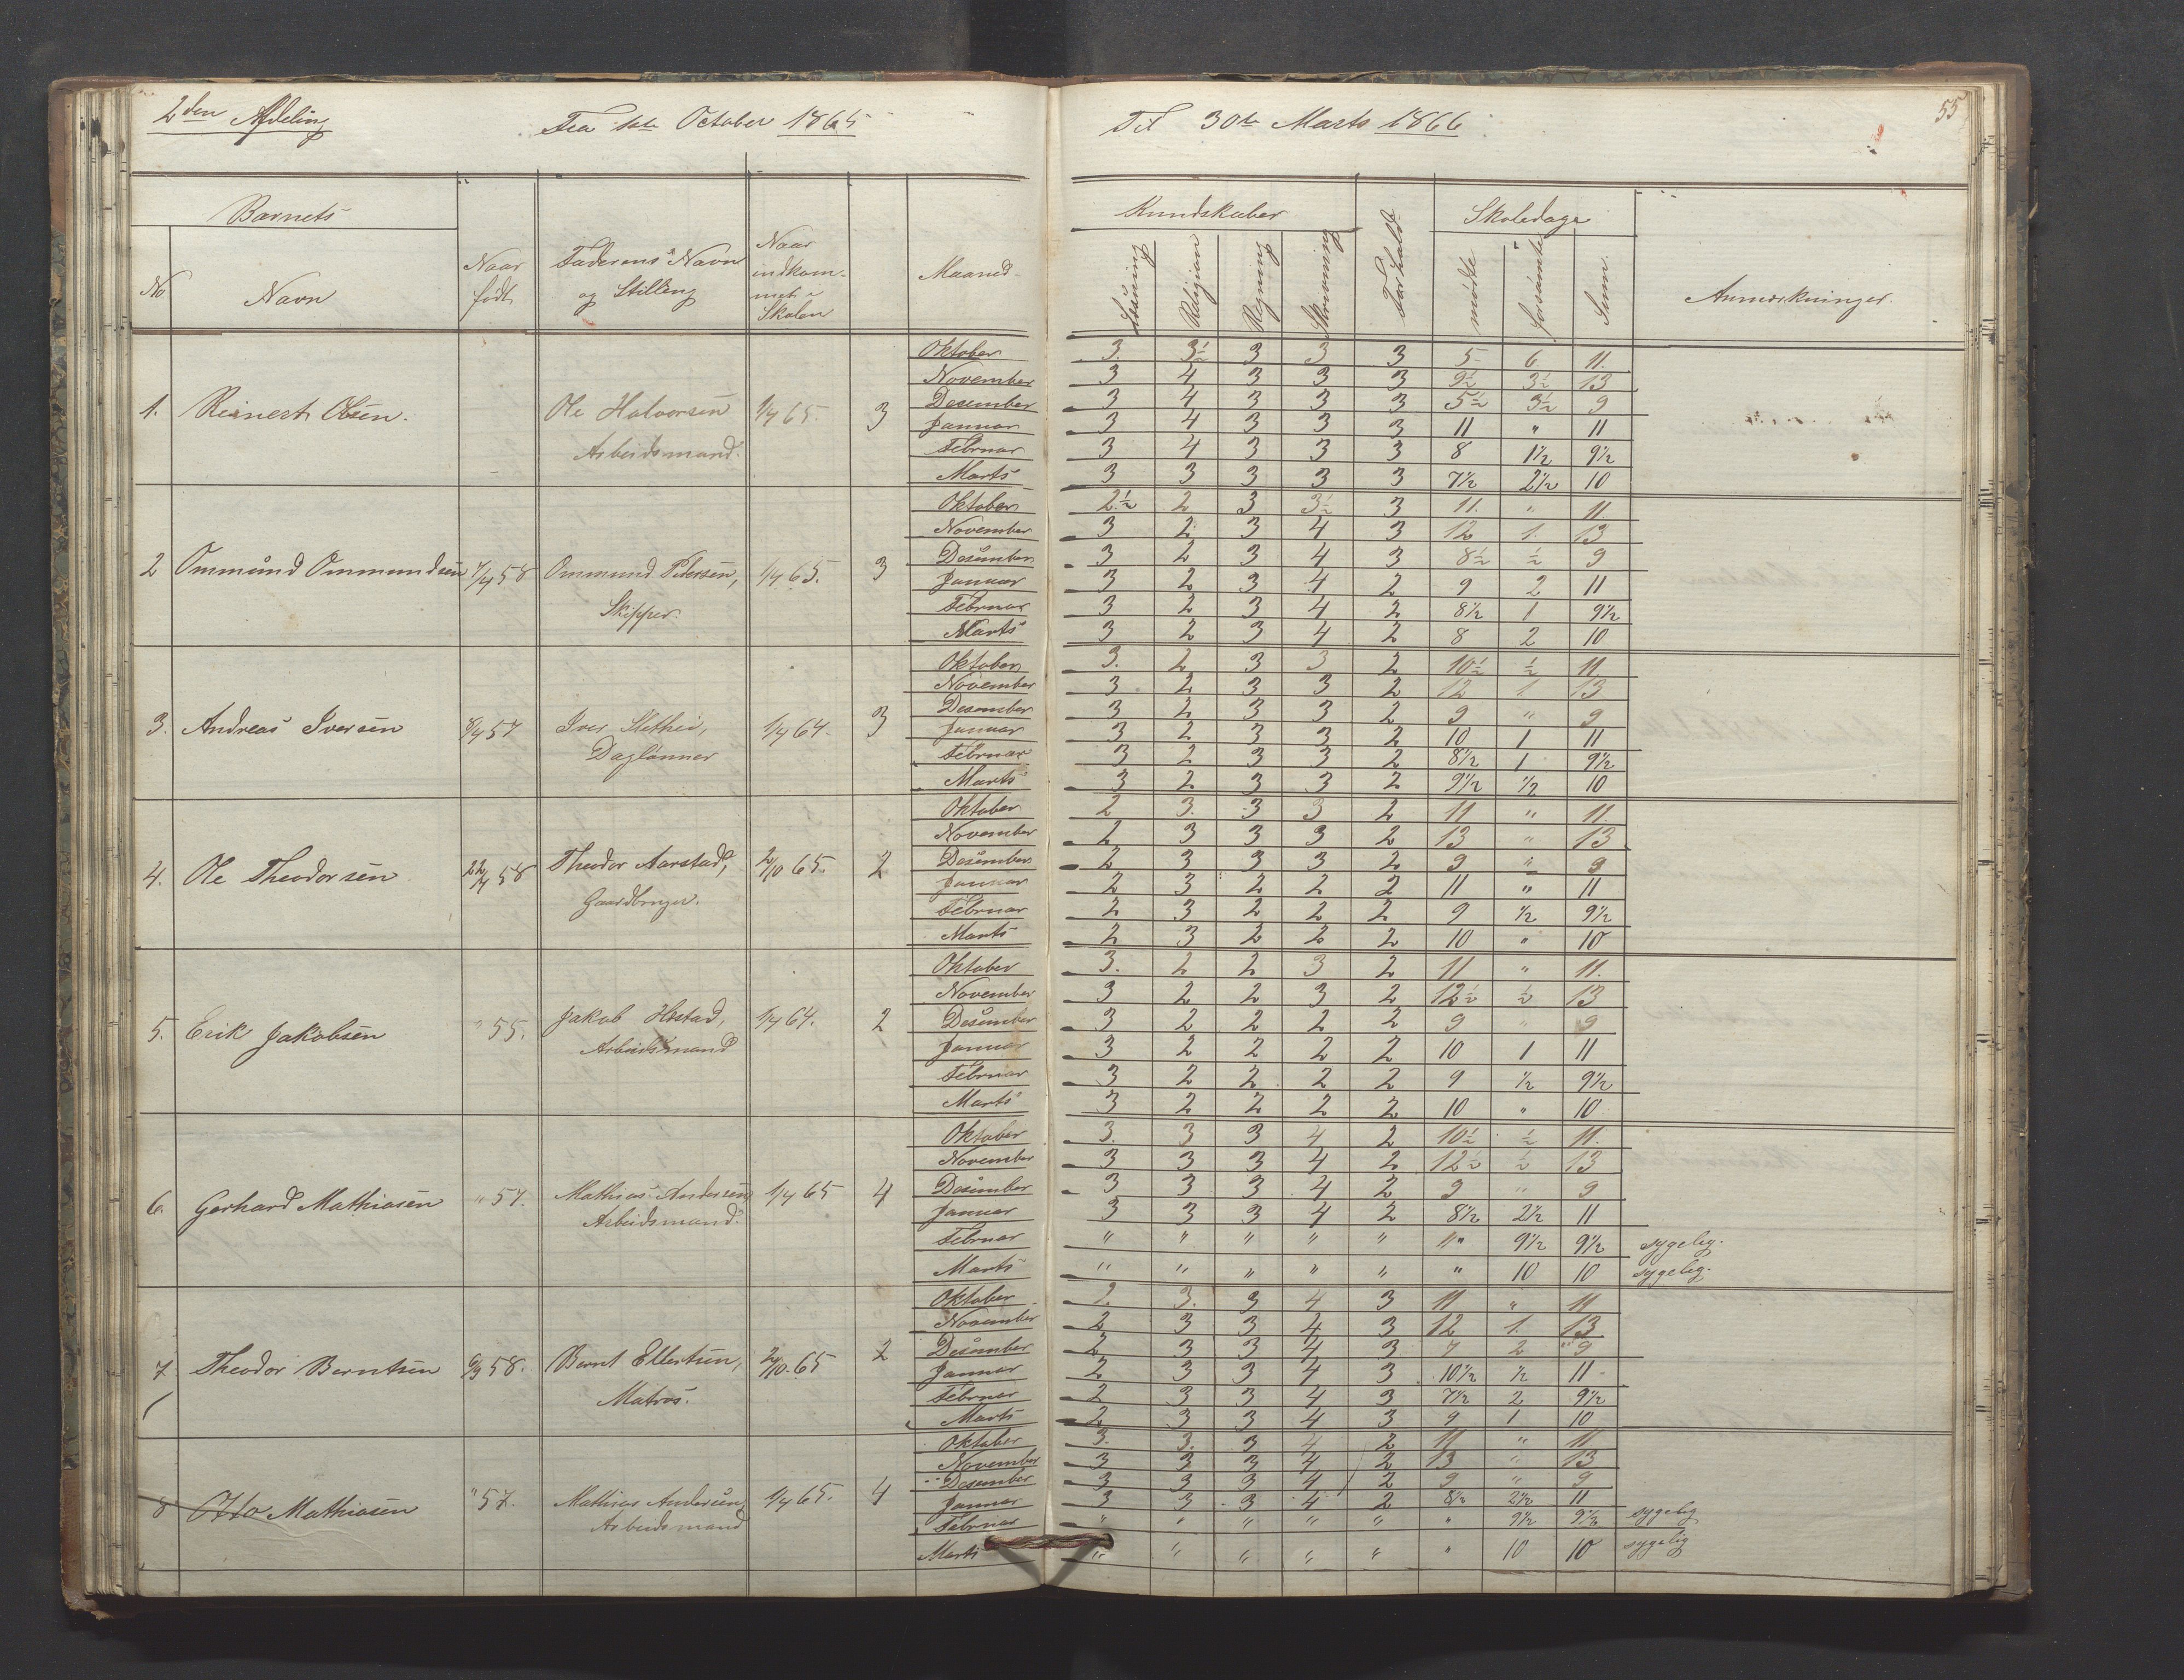 2den Afdeling
Fra 1ste October 1865
Til 30te Marts 1866
55
Barnets
No
Navn
Naar født
Faderens Navn og Stilling
Naar indkommet i Skolen
Maaned
Kundskaber
Læsning
Religion
Regning
Skrivning
Forhold
Skoledage
mødte
forsømte
Sum.
Anmærkninger.
1. Reinert Olsen. Ole Halvorsen 1/4 65. 3
Arbeidsmand.
Oktober 3. 3½ 3 3 3 5 6 11.
November 3 4 3 3 3 9½ 3½ 13
Desember 3 4 3 3 3 5½ 3½ 9
Januar 3 4 3 3 3 11 " 11
Februar 3 4 3 3 3 8 1½ 9½
Marts 3 3 3 3 3 7½ 2½ 10
2 Ommund Ommundsen 7/4 58 Ommund Petersen, 1/4 65. 3
Skipper.
Oktober 2½ 2 3 3½ 3 11. " 11.
November 3 2 3 4 3 12 1. 13
Desember 3 2 3 4 3 8½ ½ 9
Januar 3 2 3 4 2 9 2 11
Februar 3 2 3 4 2 8½ 1 9½
Marts 3 2 3 4 2 8 2 10
3. Andreas Iversen 8/4 57 Iver 1/4 64. 3
Daglønner
Oktober 3. 2 3 3 2 10½ ½ 11.
November 3 2 3 3 2 12 1 13
Desember 3 2 3 3 2 9 " 9
Januar 3 2 3 3 2 10 1 11
Februar 3 2 3 3 2 8½ 1 9½
Marts 3 2 3 3 2 9½ ½ 10
4. Ole Theodorsen 22/4 58 Theodor Aarstad, 2/10 65. 2
Gaardbruger.
Oktober 2 3. 3 3 2 11 " 11.
November 2 3 3 3 2 13 " 13
Desember 2 3 3 3 2 9 " 9
Januar 2 3 2 2 2 11 " 11
Februar 2 3 2 2 2 9 ½ 9½
Marts 2 3 2 2 2 10 " 10
5. Erik Jakobsen " 55. Jakob Hestad, 1/4 64. 2
Arbeidsmand
Oktober 3. 2 2 3 2 11 " 11.
November 3 2 2 3 2 12½ ½ 13
Desember 3 2 2 2 2 9 " 9
Januar 3 2 2 2 2 10 1 11
Februar 3 2 2 2 2 9 ½ 9½
Marts 3 2 2 2 2 10 " 10
6. Gerhard Mathiasen " 57. Mathias Andersen 1/4 65 4
Arbeidsmand.
Oktober 3. 3 3 4 2 10½ ½ 11.
November 3 3 3 4 2 12½ ½ 13
Desember 3 3 3 4 2 9 " 9
Januar 3 3 3 4 2 8½ 2½ 11
Februar " " " " " " 9½ 9½ sygelig.
Marts " " " " " " 10 10 sygelig.
7. Theodor Berntsen 6/9 58. Bernt Ellertsen, 2/10 65 2
Matros.
Oktober 2. 3. 3 4 3 11 " 11
November 2 3 3 4 3 12 1. 13
Desember 2 3 3 4 3 7 2 9
Januar 2 3 3 4 3 10½ ½ 11
Februar 2 3 3 4 3 7½ 2 9½
Marts 2 3 3 4 3 9 1 10
8 Otto Mathiasen " 57. Mathias Andersen, 1/4 65. 4
Arbeidsmand
Oktober 3. 3. 3 4 2 11 " 11
November 3 3 3 4 2 13 " 13
Desember 3 3 3 4 2 9 " 9
Januar 3 3 3 4 2 8½ 2½ 11
Februar " " " " " " 9½ 9½ sygelig
Marts " " " " " " 10 10 sygelig